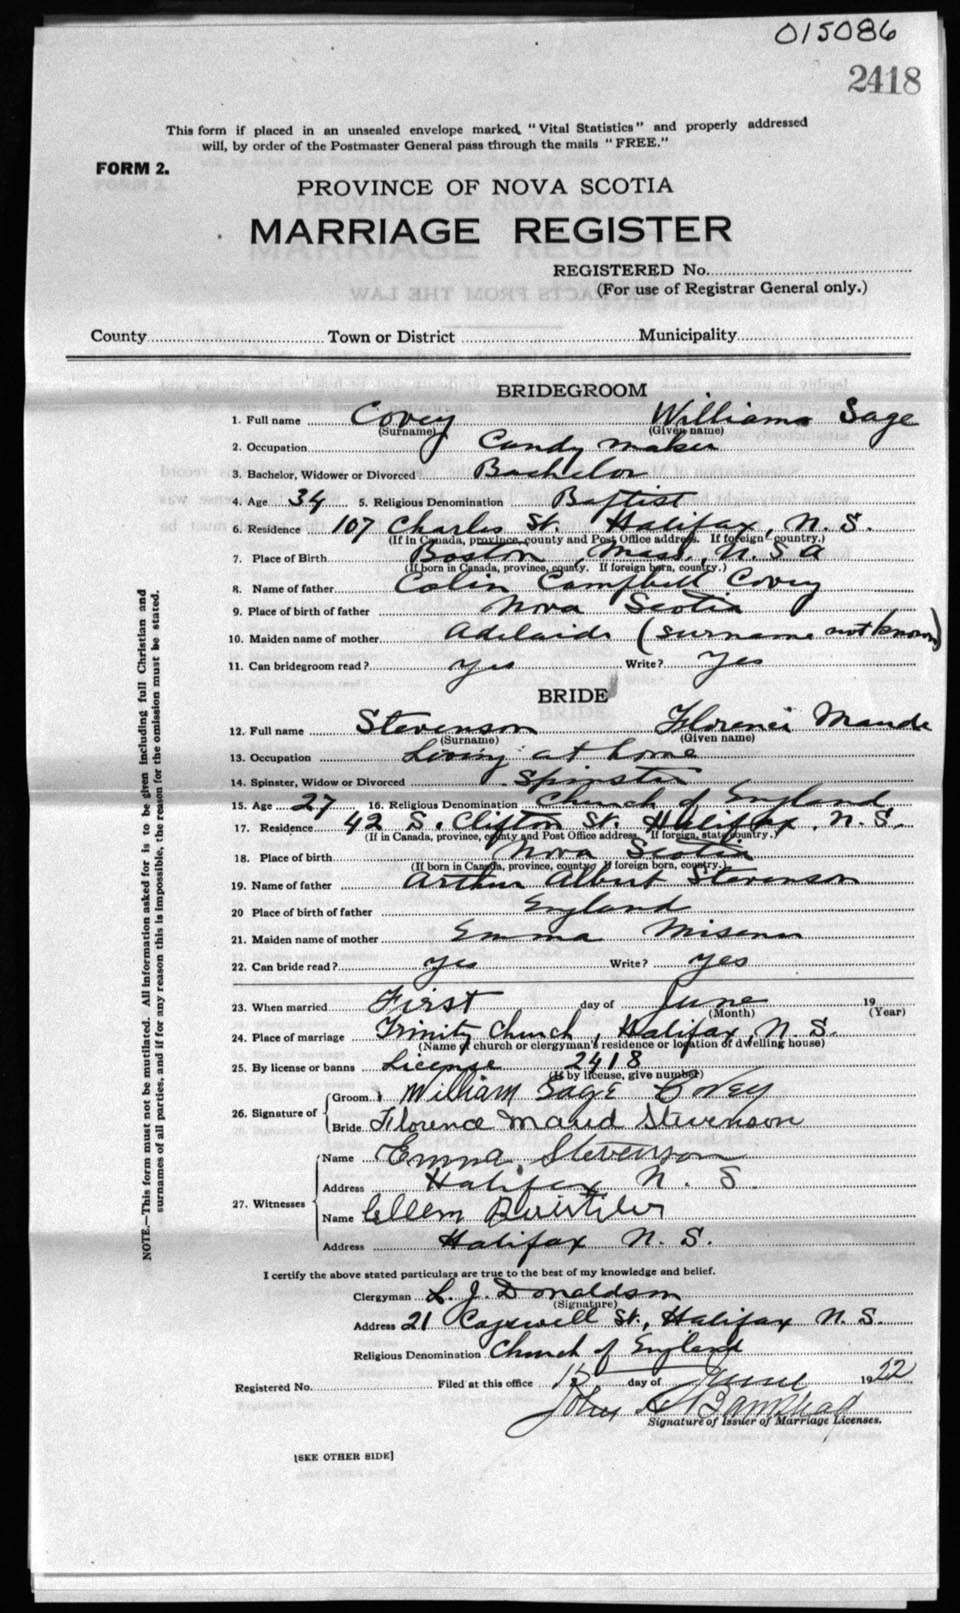 015086
2418
This form if placed in an unsealed envelope marked, "Vital Statistics" and properly addressed
will, by order of the Postmaster General pass through the mails "FREE."
FORM 2.
PROVINCE OF NOVA SCOTIA
MARRIAGE REGISTER
REGISTERED No.
(For use of Registrar General only.)
County Town or District Municipality
BRIDEGROOM
1. Full name Covey William Sage
(Surname) (Given name)
2. Occupation Candy maker
3. Bachelor, Widower or Divorced Bachelor
4. Age 34 5. Religious Denomination Baptist
6. Residence 107 Charles St. Halifax, N. S.
(If in Canada, province, county and Post Office address. If foreign country.)
7. Place of Birth Boston, Mass, U. S. A
(If born in Canada, province, county. If foreign born, country.)
8. Name of father Colin Campbell Covey
9. Place of birth of father Nova Scotia
10. Maiden name of mother Adelaide (surname not known)
11. Can bridegroom read? yes Write? yes
BRIDE
12. Full name Stevenson Florence Maude
(Surname) (Given name)
13. Occupation Living at home
14. Spinster, Widow or Divorced Spinster
15. Age 27 16. Religious Denomination Church of England
17. Residence 42 S. Clifton St. Halifax, N. S.
(If in Canada, province, county and Post Office address. If foreign, state country.)
18. Place of birth Nova Scotia
(If born in Canada, province, county. If foreign born, country.)
19. Name of father Arthur Albert Stevenson
20 Place of birth of father England
21. Maiden name of mother Emma Misener
22. Can bride read? yes Write? yes
23. When married First day of June 19
(Month) (Year)
24. Place of marriage Trinity Church, Halifax, N. S.
(Name of church or clergyman's residence or location of dwelling house)
25. By license or banns License 2418
(If by license, give number)
26. Signature of Groom William Sage Covey
Bride Florence Maud Stevenson
27. Witnesses Name Emma Stevenson
Address Halifax N. S.
Name
Address Halifax N. S.
I certify the above stated particulars are true to the best of my knowledge and belief.
Clergyman L. J. Donaldson
(Signature)
Address 21 Cogswell St., Halifax N. S.
Religious Denomination Church of England
Registered No. Filed at this office day of June 1922
John
Signature of Issuer of Marriage Licenses.
[SEE OTHER SIDE]
NOTE.—This form must not be mutilated. All information asked for is to be given including full Christian and
surnames of all parties, and if for any reason this is impossible, the reason for the omission must be stated.